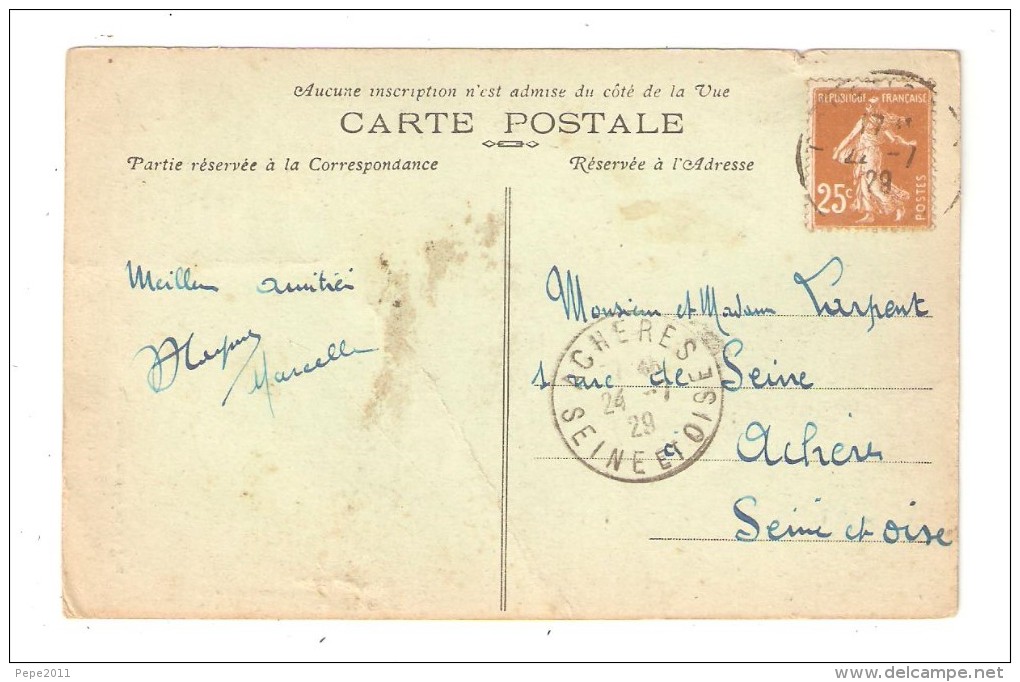 Aucune inscription n'est admise du côté de la Vue
CARTE POSTALE
Partie réservée à la Correspondance
Réservée à l'Adresse
REPUBLIQUE FRANÇAISE
25c
POSTES
22 -7
29
Meilleu amitiés
Marcelle
Monsieur et Madame Larpent
1 rue de Seine
à Achères
Seine et Oise
ACHERES
24 -7
29
SEINE ET OISE
Pepe2011
www.delcampe.net